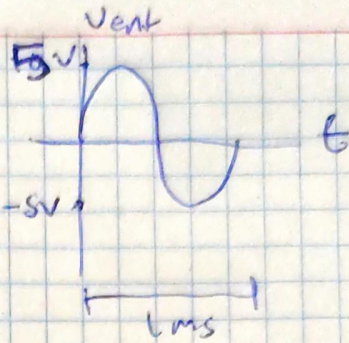 Vent
5V
t
-5V
1ms